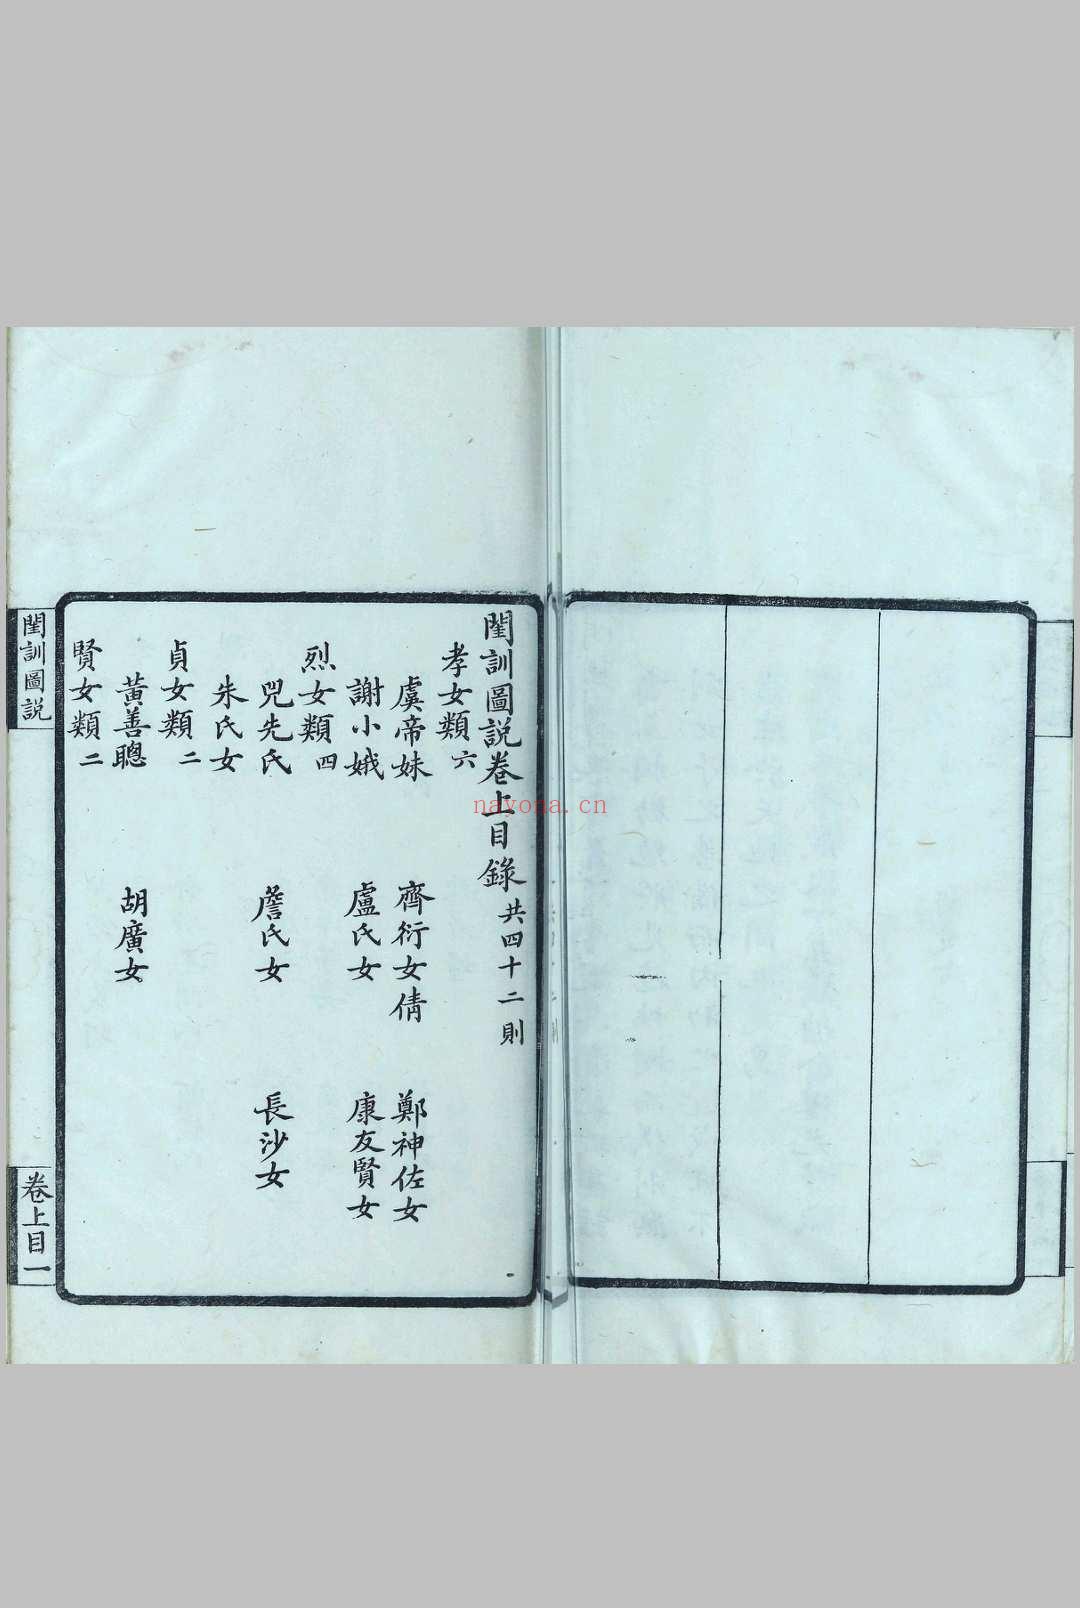 閨訓圖説卷上目錄 共四十二則
孝女類 六
虞帝妹 齊衍女倩 鄭神佐女
謝小娥 盧氏女 康友賢女
烈女類 四
兕先氏 詹氏女 長沙女
朱氏女
貞女類 二
黃善聰 胡廣女
賢女類 二
閨訓圖説
卷上目一
nayona.cn